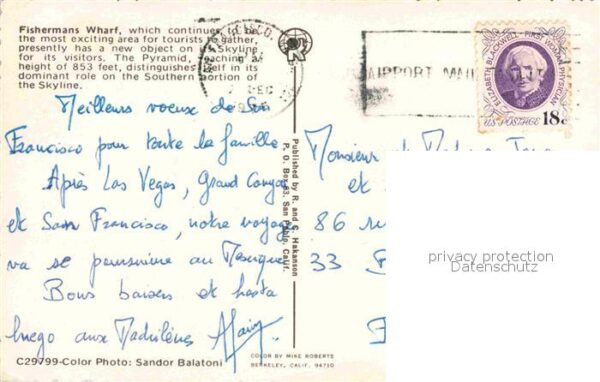 Fishermans Wharf, which continues to be
the most exciting area for tourists to gather,
presently has a new object on its Skyline
for its visitors. The Pyramid, reaching a
height of 853 feet, distinguishes itself in its
dominant role on the Southern portion of
the Skyline.
Meilleurs voeux de San
Francisco pour toute la famille
Après Las Vegas, Grand Canyon
et San Francisco, notre voyage
va se poursuivre au Mexique
Bons baisers et hasta
luego aux Madrilènes Alain
C29799-Color Photo: Sandor Balatoni
Published by R. and C. Hakanson
P. O. Box 83, San Pablo, Calif.
COLOR BY MIKE ROBERTS
BERKELEY, CALIF. 94710
DEC
AIRPORT MAIL
ELIZABETH BLACKWELL · FIRST WOMAN PHYSICIAN
US POSTAGE 18c
Monsieur et
et
86
33
privacy protection
Datenschutz